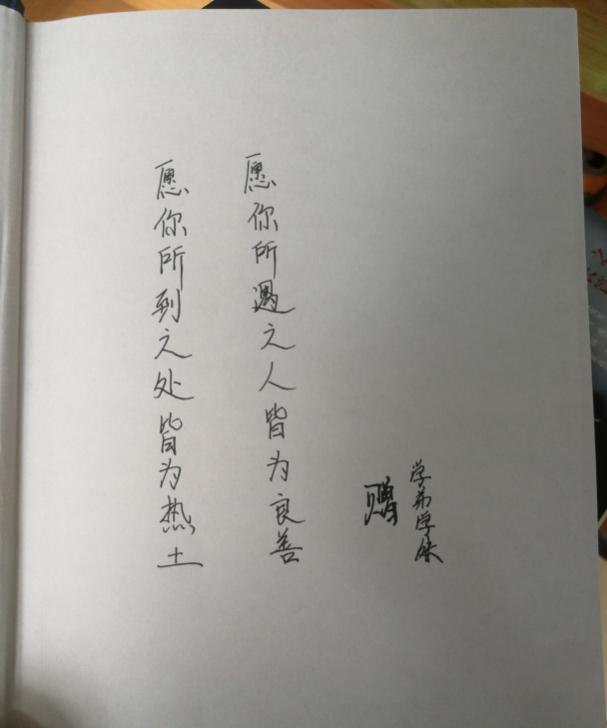 愿你所到之处皆为热土
愿你所遇之人皆为良善
赠
学弟学妹